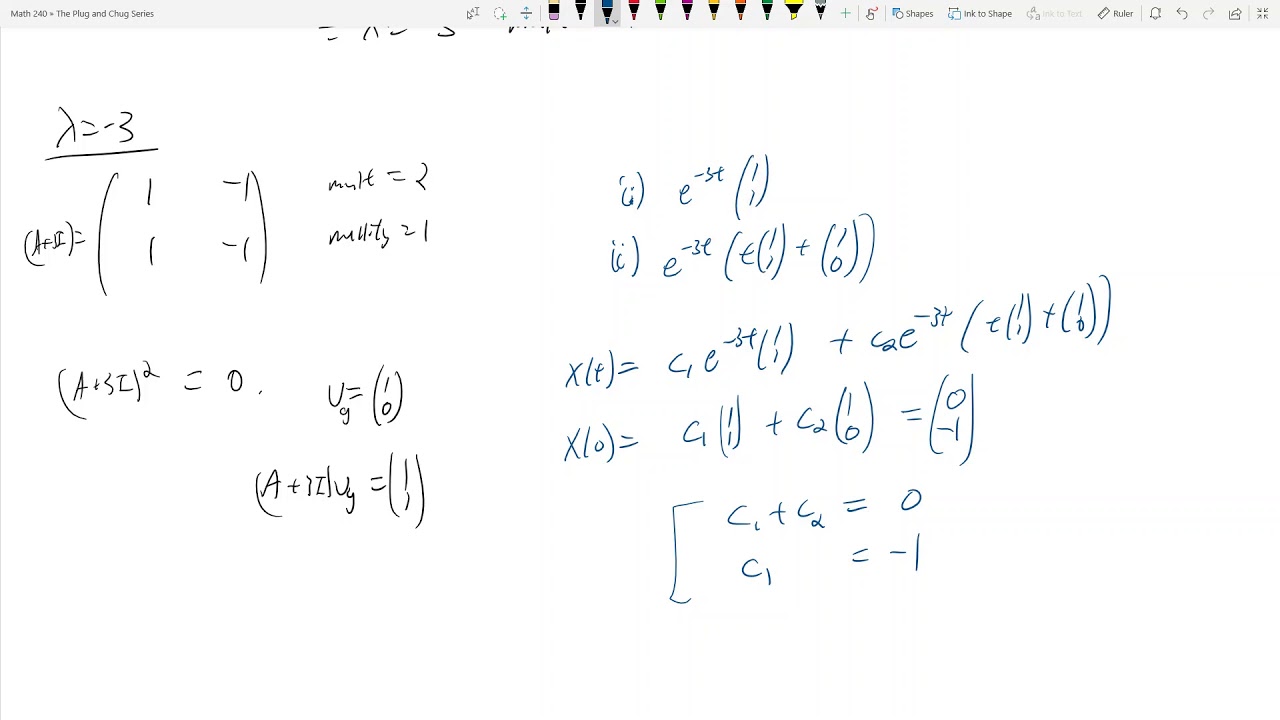 Math 240 » The Plug and Chug Series
Shapes
Ink to Shape
Ink to Text
Ruler
λ=-3
(A+3I)= ( 1 -1
1 -1 )
mult = 2
nullity = 1
(A+3I)² = 0.
Ug= (1
0)
(A+3I)Ug = (1
1)
i) e^-3t (1
1)
ii) e^-3t (t(1
1) + (1
0))
X(t)= c₁e^-3t(1
1) + c₂e^-3t (t(1
1)+(1
0))
X(0)= c₁(1
1) + c₂(1
0) = (0
-1)
c₁ + c₂ = 0
c₁ = -1